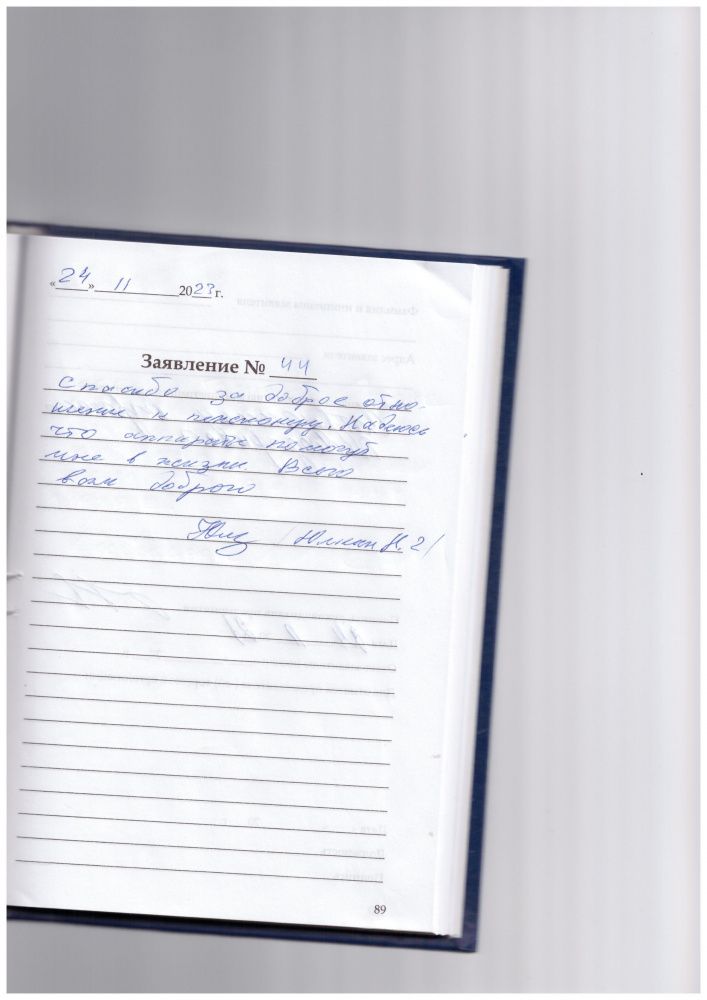 «24» 11 2023 г.
Заявление № 44
Спасибо за доброе отно-
шение к пенсионеру. Надеюсь
что аппараты помогут
мне в жизни Всего
вам доброго
89